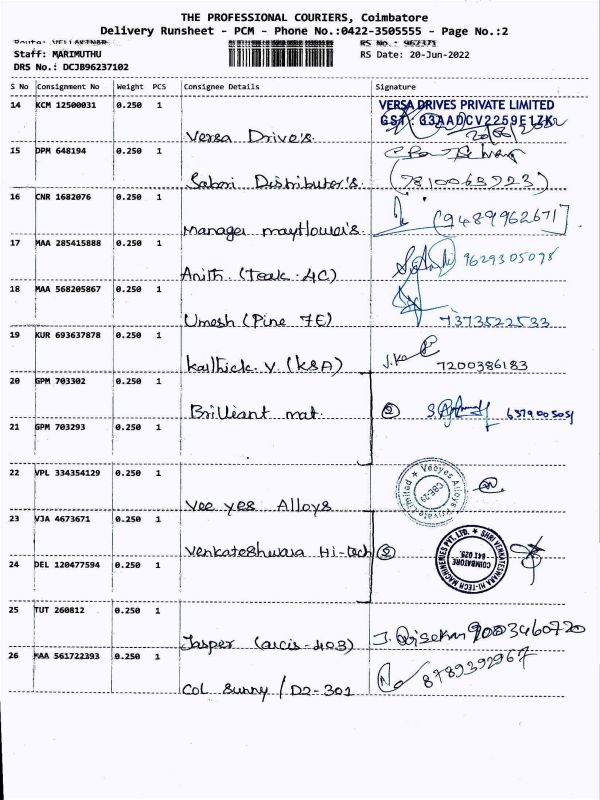 THE PROFESSIONAL COURIERS, Coimbatore
Delivery Runsheet - PCM - Phone No.:0422-3505555 - Page No.:2
Route: VELLAKINAR RS No.: 962371
Staff: MARIMUTHU RS Date: 20-Jun-2022
DRS No.: DCJB96237102
S No Consignment No Weight PCS Consignee Details Signature
14 KCM 12500031 0.250 1 Versa Drive's. VERSA DRIVES PRIVATE LIMITED
GST : 33AADCV2259E1ZK
20/06/2022
15 DPM 648194 0.250 1 Sabari Distributor's. (7810063723)
16 CNR 1682076 0.250 1 Manager mayflower's. (9489962671)
17 MAA 285415888 0.250 1 Anith (Teak-4C) 9629305098
18 MAA 568205867 0.250 1 Umesh (Pine 7E) 7373522533
19 KUR 693637878 0.250 1 Karthick.V (KSA) 7200386183
20 GPM 703302 0.250 1 Brilliant mat. 2
21 GPM 703293 0.250 1
22 VPL 334354129 0.250 1 Vee yes Alloys Veeyes Alloys Private Limited
CBE-29
23 VJA 4673671 0.250 1 Venkateshwara Hi-tech 2 SHRI VENKATESWARA HI-TECH MACHINERIES PVT. LTD.
COIMBATORE
641 029.
24 DEL 120477594 0.250 1
25 TUT 260812 0.250 1 Jasper (arcis-403) 9003460720
26 MAA 561722393 0.250 1 Col Sunny / D2-301 8789392967